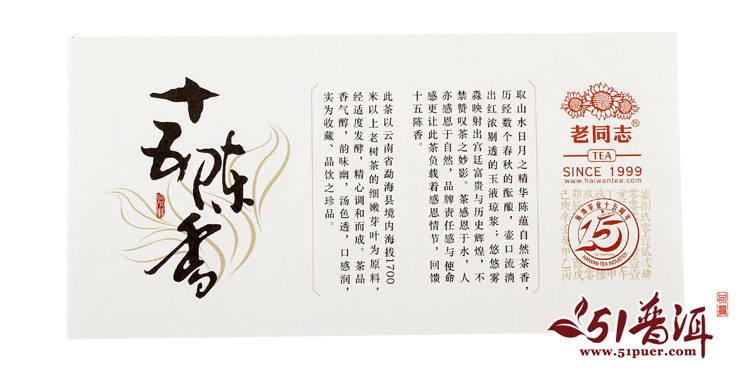 十五陈香
取山水日月之精华陈蕴自然茶香，
历经数个春秋的酝酿，壶口流淌
出红浓剔透的玉液琼浆；悠悠雾
淼映射出宫廷富贵与历史辉煌，不
禁赞叹茶之妙影。茶感恩于水，人
亦感恩于自然，品牌责任感与使命
感更让此茶负载着感恩情节，回馈
十五陈香。
此茶以云南省勐海县境内海拔1700
米以上老树茶的细嫩芽叶为原料，
经适度发酵，精心调和而成。茶品
香气醇，韵味幽，汤色透，口感润，
实为收藏、品饮之珍品。
老同志®
TEA
SINCE 1999
www.haiwantea.com
海湾茶业十五周年
15
HAIWAN TEA INDUSTRY
51普洱
www.51puer.com